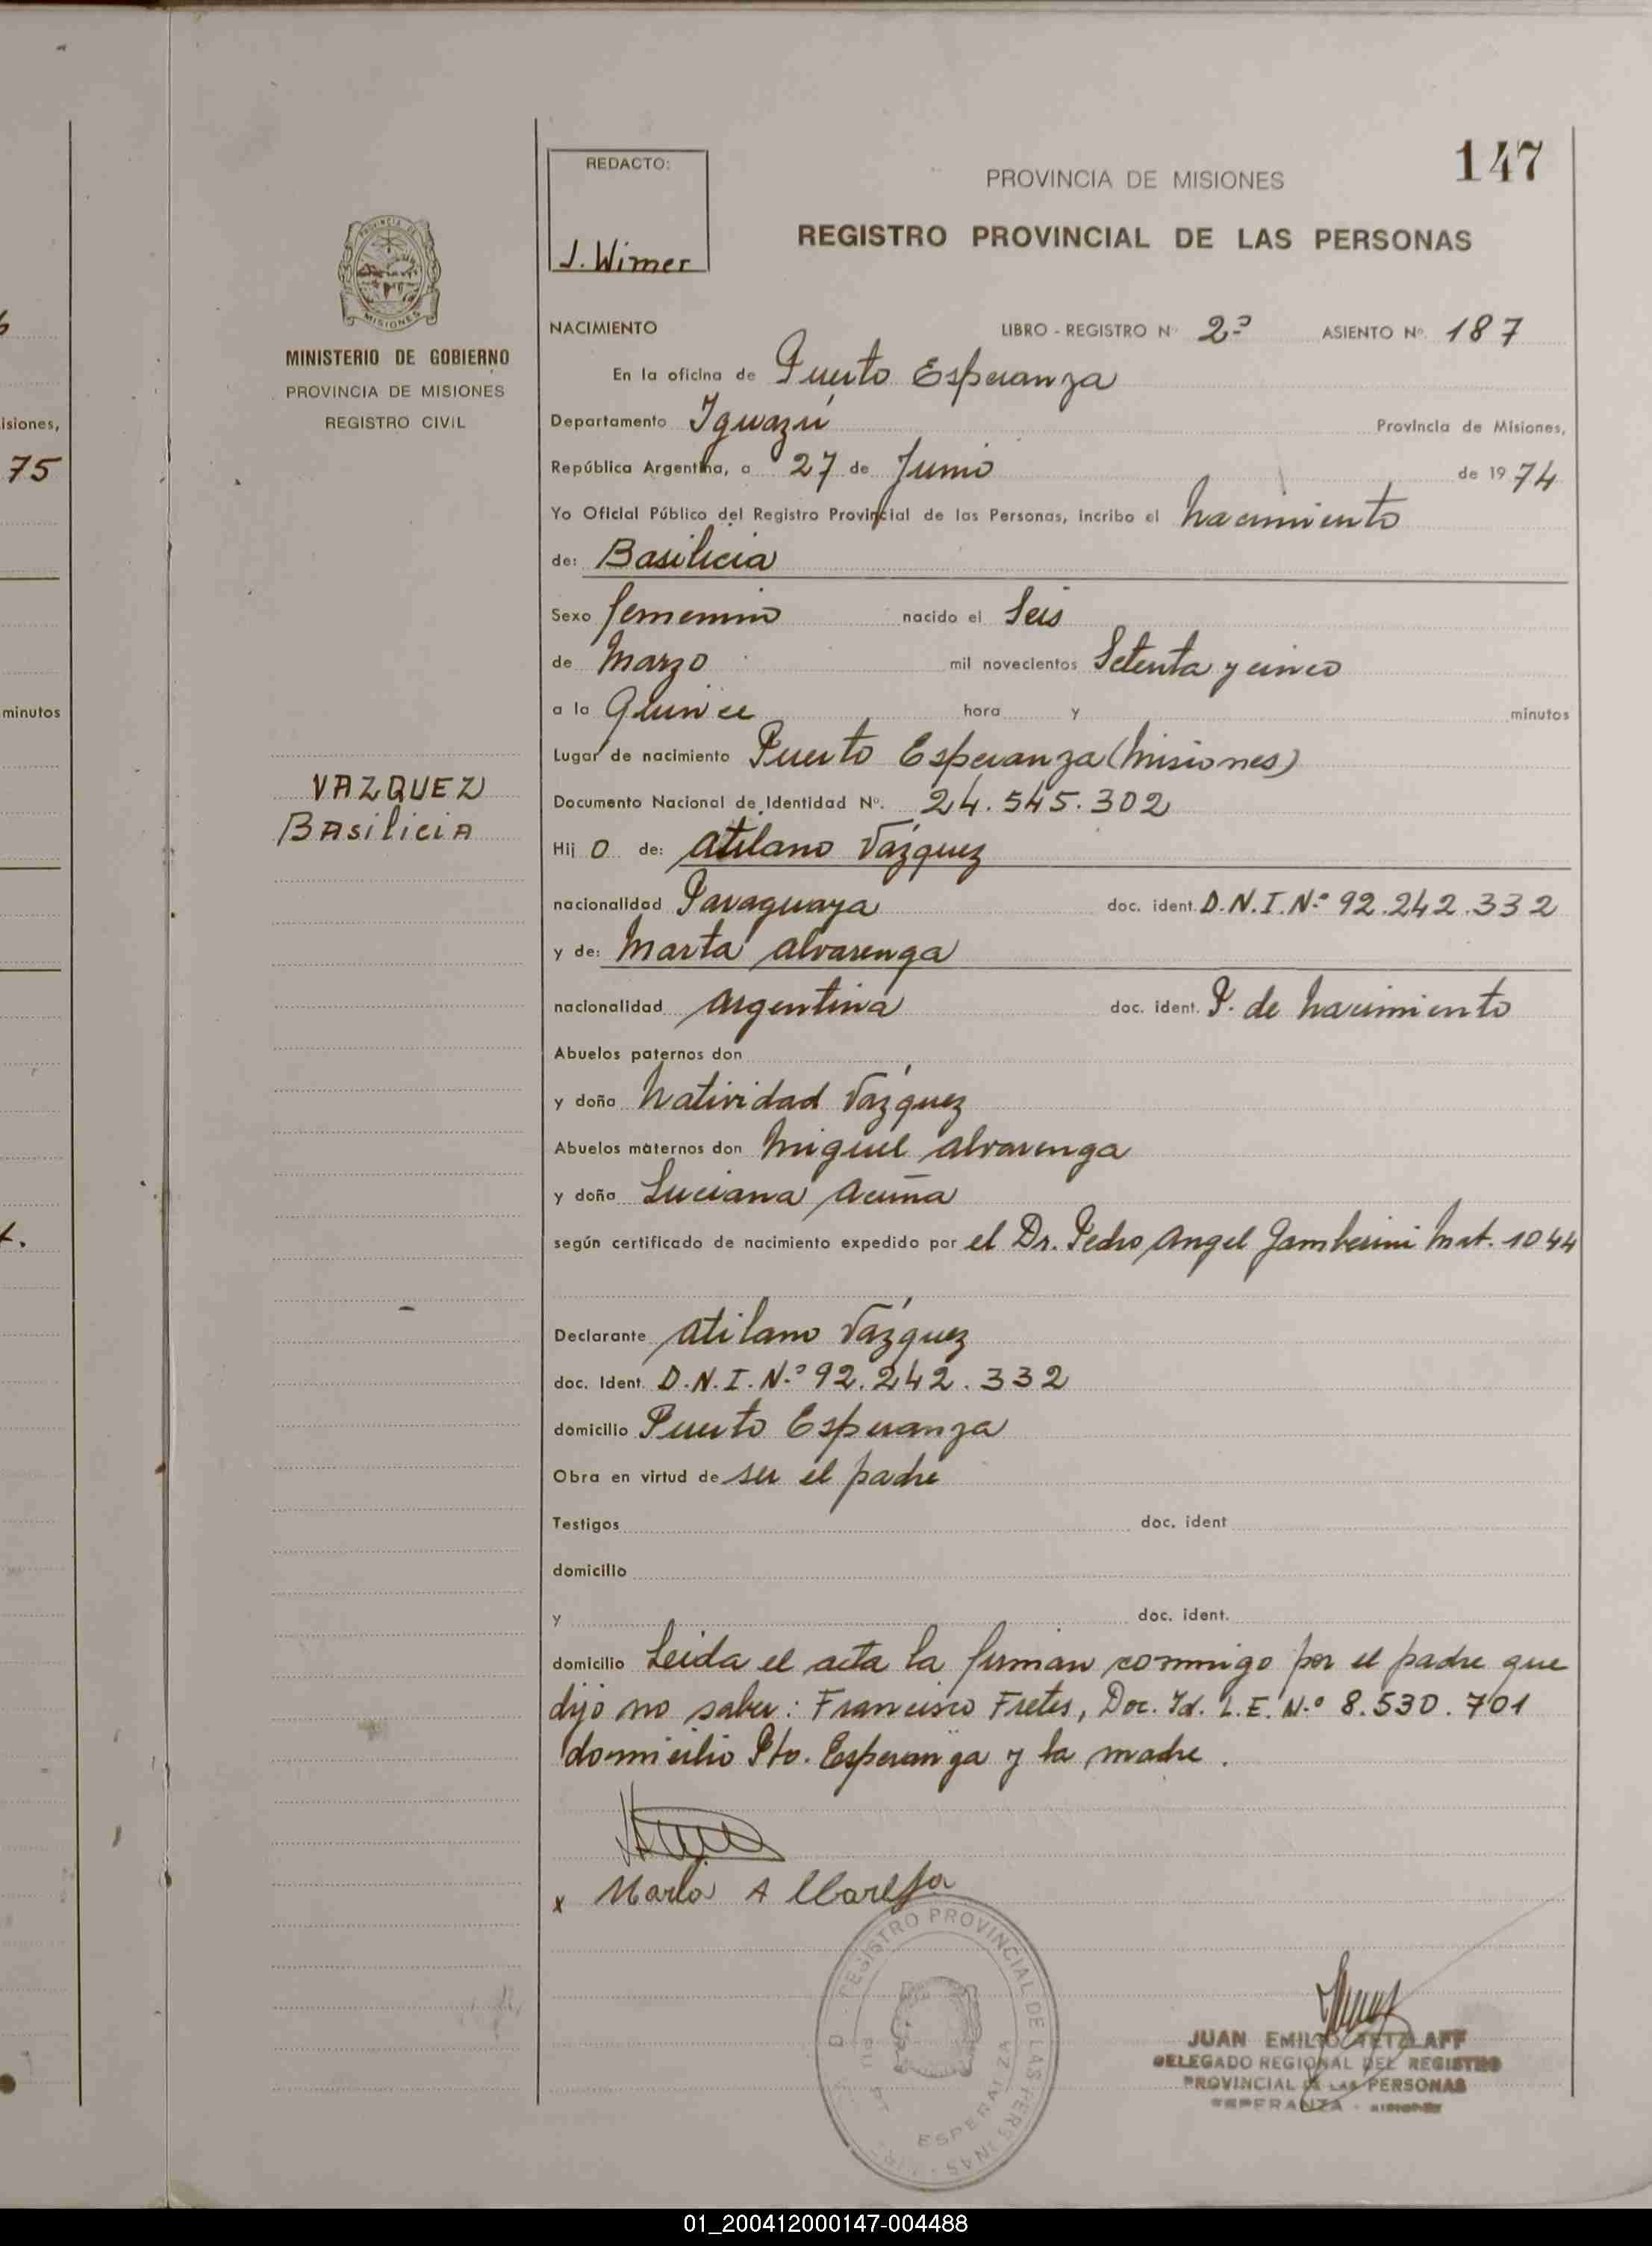 147
REDACTO:
J. Wimer
PROVINCIA DE MISIONES
REGISTRO PROVINCIAL DE LAS PERSONAS
PROVINCIA DE
MISIONES
MINISTERIO DE GOBIERNO
PROVINCIA DE MISIONES
REGISTRO CIVIL
isiones,
75
minutos
VAZQUEZ
BAsiliciA
NACIMIENTO LIBRO - REGISTRO Nº 2º ASIENTO Nº. 187
En la oficina de Puerto Esperanza
Departamento Iguazú Provincia de Misiones,
República Argentina, a 27 de Junio de 19 74
Yo Oficial Público del Registro Provincial de las Personas, incribo el nacimiento
de: Basilicia
Sexo femenino nacido el Seis
de Marzo mil novecientos Setenta y cinco
a la Quince hora y minutos
Lugar de nacimiento Puerto Esperanza (Misiones)
Documento Nacional de Identidad Nº. 24.545.302
Hij o de: Atilano Vázquez
nacionalidad Paraguaya doc. ident. D.N.I.N.º 92.242.332
y de: Marta Alvarenga
nacionalidad Argentina doc. ident. P. de Nacimiento
Abuelos paternos don
y doña Natividad Vázquez
Abuelos maternos don Miguel Alvarenga
y doña Luciana Acuña
según certificado de nacimiento expedido por el Dr. Pedro Angel Gamberini Mat. 1044
Declarante Atilano Vázquez
doc. Ident. D.N.I.N.º 92.242.332
domicilio Puerto Esperanza
Obra en virtud de ser el padre
Testigos doc. ident
domicilio
y doc. ident.
domicilio Leida el acta la firman conmigo por el padre que
dijo no saber: Francisco Fretes, Doc. Id. L.E. N.º 8.530.701
domicilio Pto. Esperanza y la madre.
x
REGISTRO PROVINCIAL DE LAS PERSONAS
ESPERANZA
JUAN EMILIO TETZLAFF
DELEGADO REGIONAL DEL REGISTRO
PROVINCIAL DE LAS PERSONAS
ESPERANZA - MISIONES
01_200412000147-004488